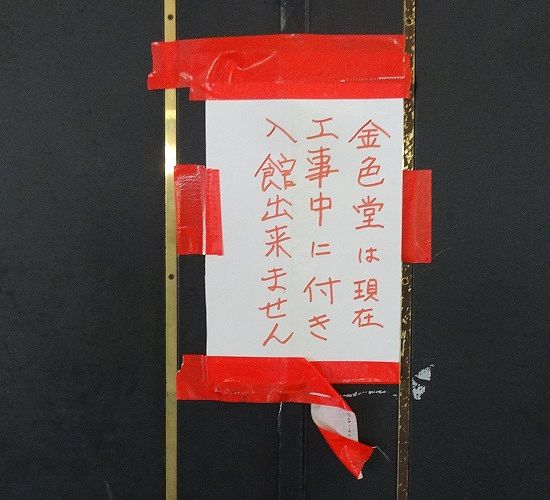 金色堂は現在
工事中に付き
入館出来ません